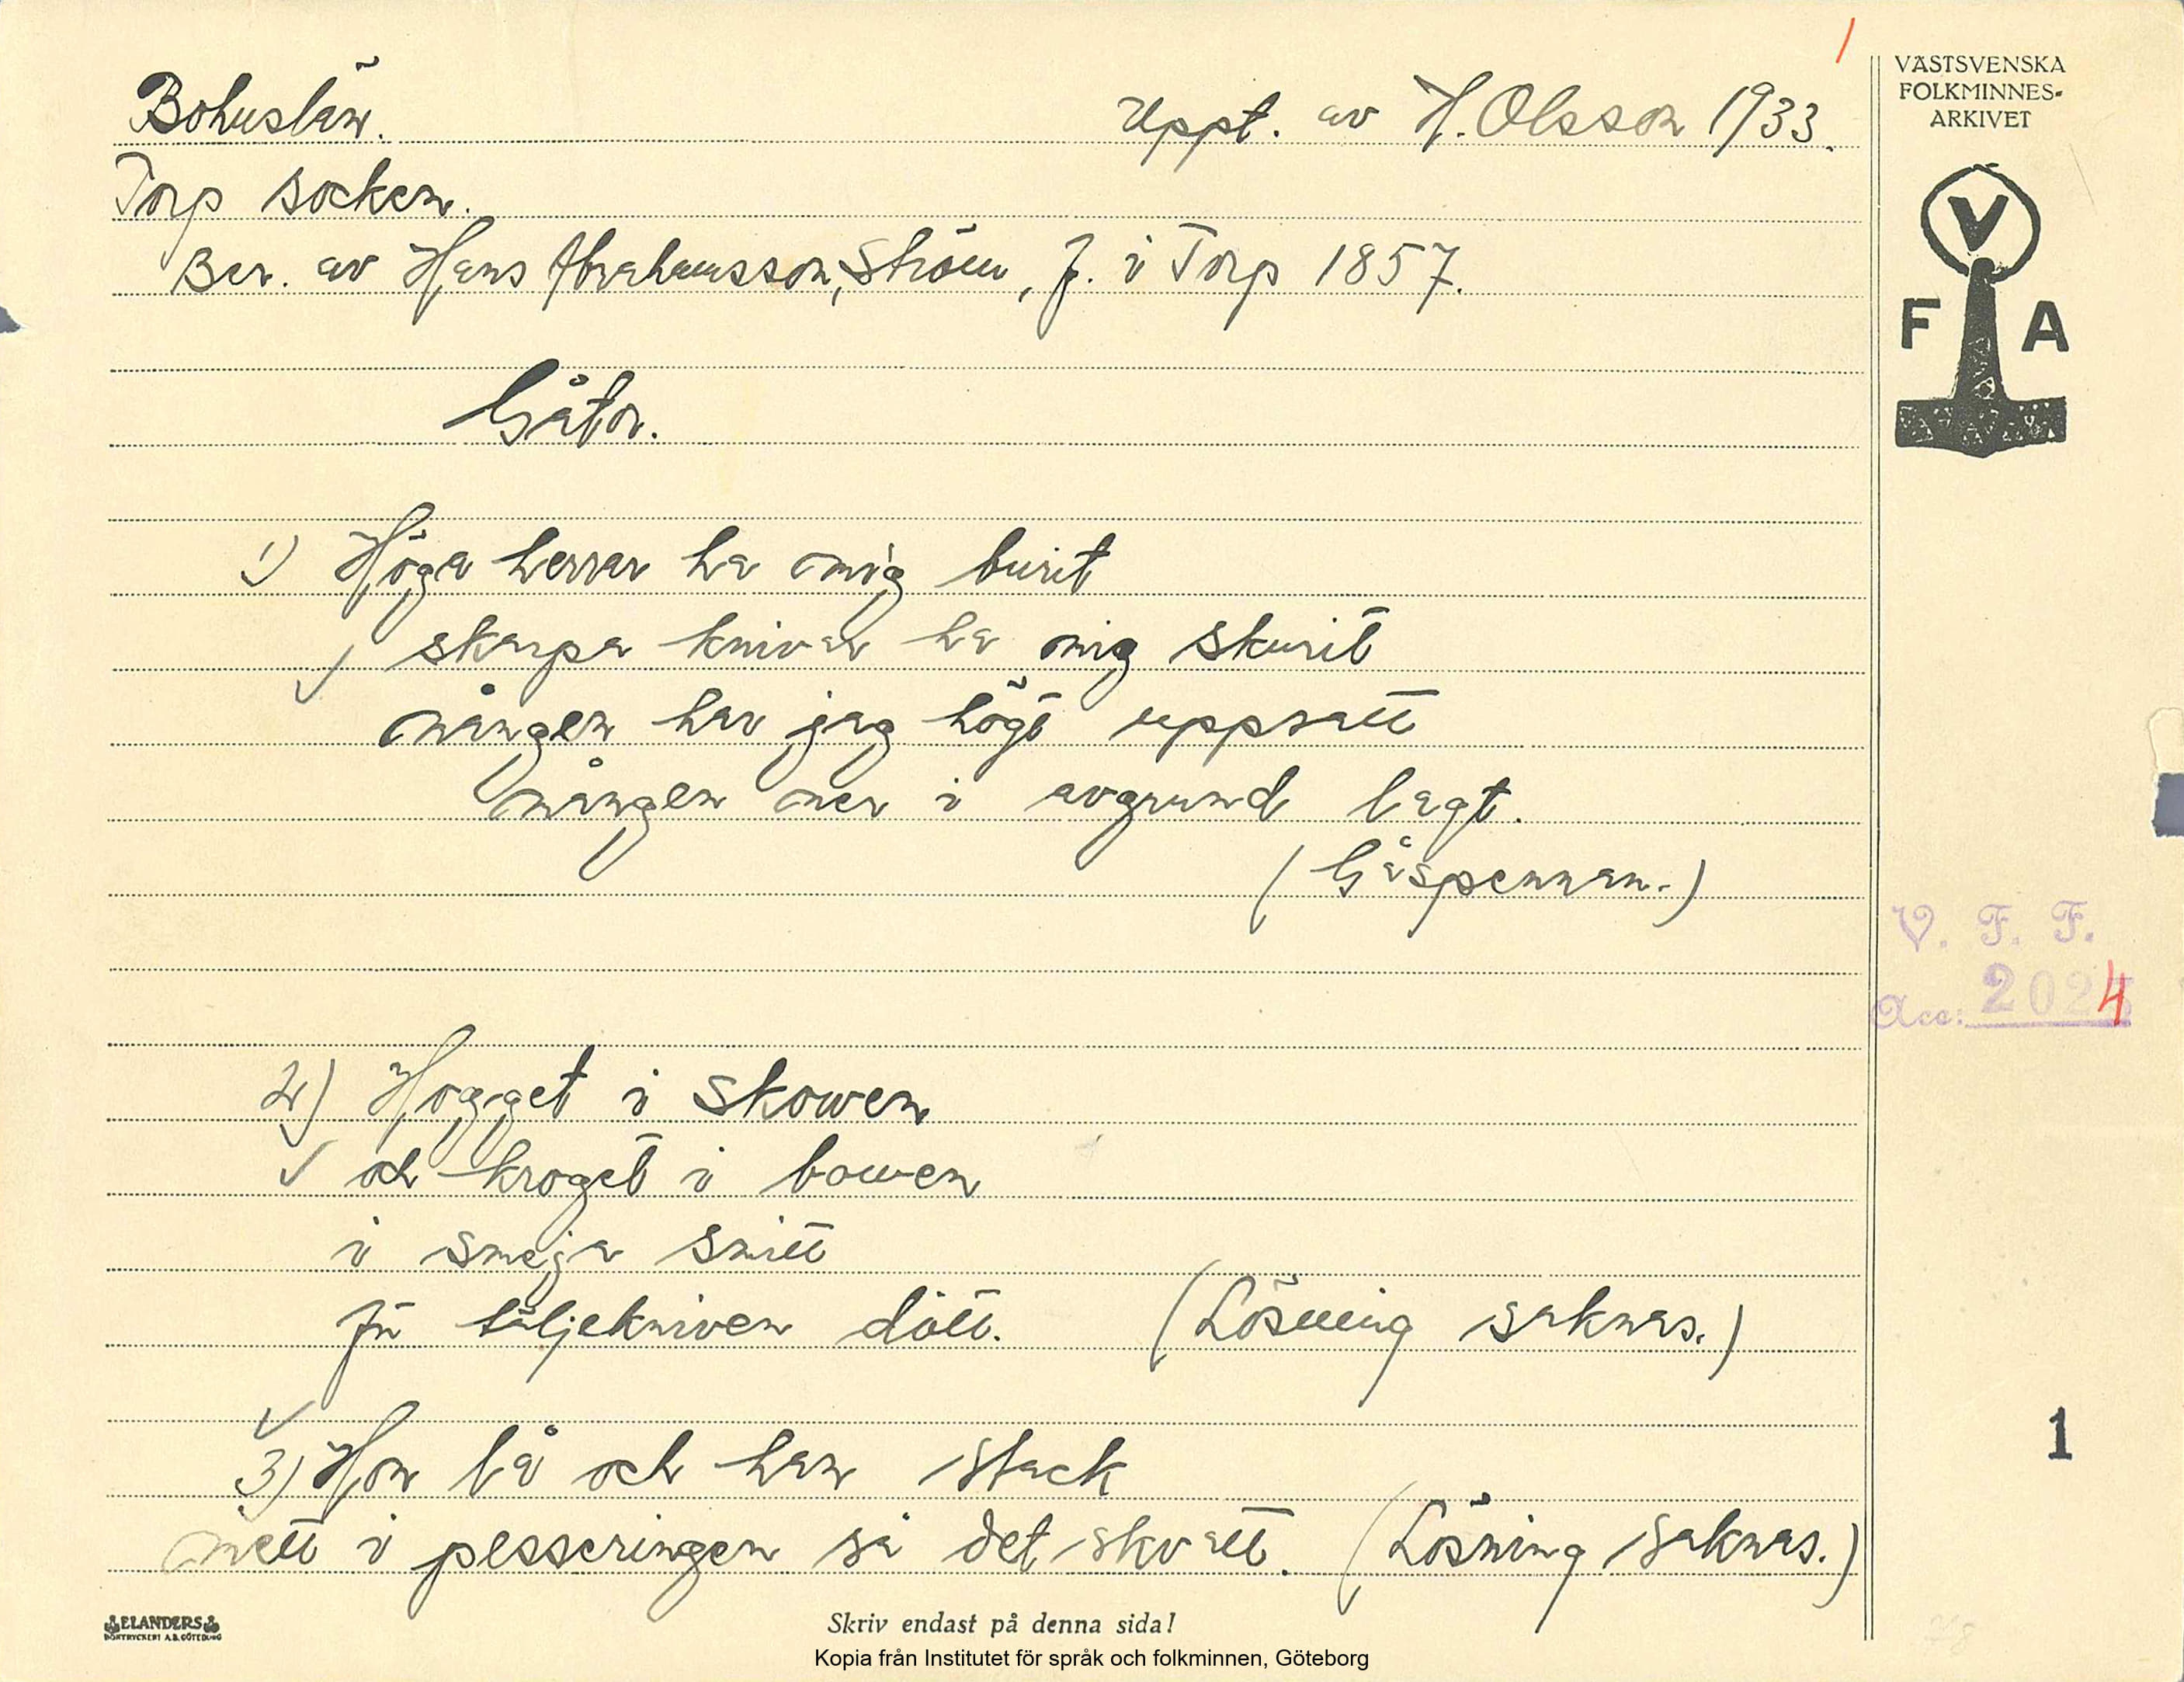 Bohuslän. Uppt. av H. Olsson 1933.
Torp socken.
Ber. av Hans Abrahamsson, Ström, f. i Torp 1857.
Gåtor.
1) Höga herrar ha mig burit
skarpa knivar ha mig skurit
mången har jag högt uppsatt
mången ner i avgrund lagt.
(Gåspennan.)
2) Hogget i skowen
och kroget i bowen
i smeja smitt
får täljekniven dött. (Lösning saknas.)
3) Hon lå och han stack
mett i plesseringen så det skvatt. (Lösning saknas.)
ELANDERS
BOKTRYCKERI A.B. GÖTEBORG
Skriv endast på denna sida!
Kopia från Institutet för språk och folkminnen, Göteborg
1
VÄSTSVENSKA
FOLKMINNES-
ARKIVET
V
F A
V. F. F.
Acc: 2024
1